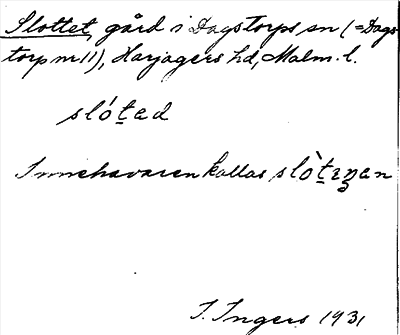 Slottet, gård i Dagstorps sn (=Dags
torp nr 11), Harjagers hd, Malm. l.
slót̠ad
Innehavaren kallas slòt̠ɪŋan
I. Ingers 1931